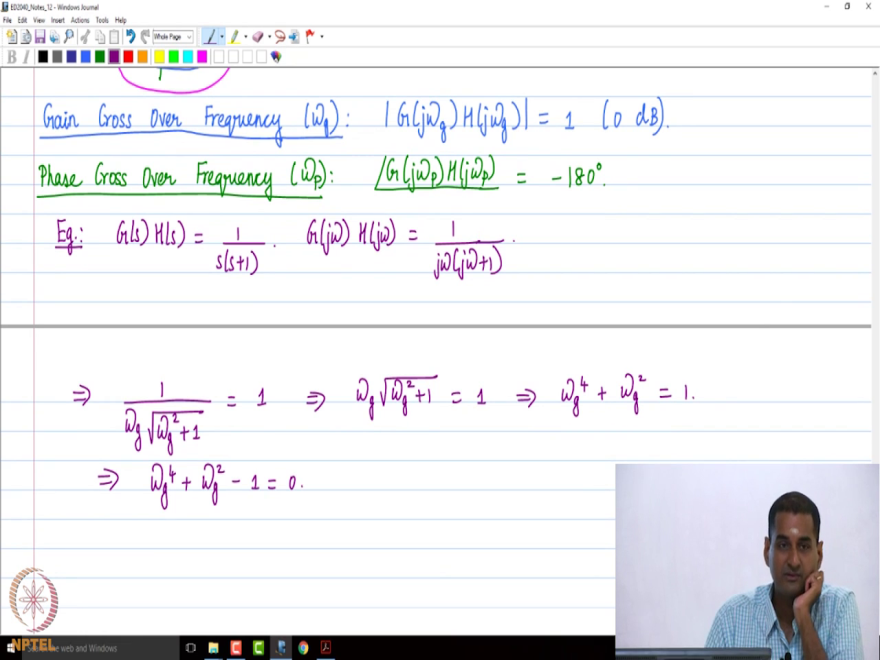 ED2040_Notes_12 - Windows Journal
File Edit View Insert Actions Tools Help
Whole Page
B I
Gain Cross Over Frequency (ω_g): |G(jω_g)H(jω_g)| = 1 (0 dB).
Phase Cross Over Frequency (ω_p): ∠G(jω_p)H(jω_p) = -180°.
Eg.: G(s) H(s) = 1/(s(s+1)). G(jω) H(jω) = 1/(jω(jω+1)).
⇒ 1/(ω_g√(ω_g²+1)) = 1 ⇒ ω_g√(ω_g²+1) = 1 ⇒ ω_g⁴ + ω_g² = 1.
⇒ ω_g⁴ + ω_g² - 1 = 0.
NPTEL
the web and Windows